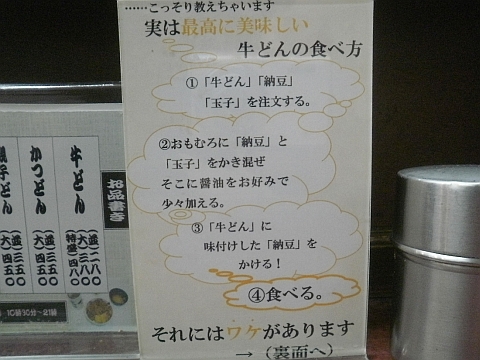 ……こっそり教えちゃいます
実は最高に美味しい
牛どんの食べ方
①「牛どん」「納豆」
「玉子」を注文する。
②おもむろに「納豆」と
「玉子」をかき混ぜ
そこに醤油をお好みで
少々加える。
③「牛どん」に
味付けした「納豆」を
かける！
④食べる。
それにはワケがあります
→（裏面へ）
お品書き
牛どん
（並）二八〇
（大）三八〇
（特盛）四八〇
かつどん
（並）三五〇
（大）四五〇
子どん
（並）三五〇
（大）四五〇